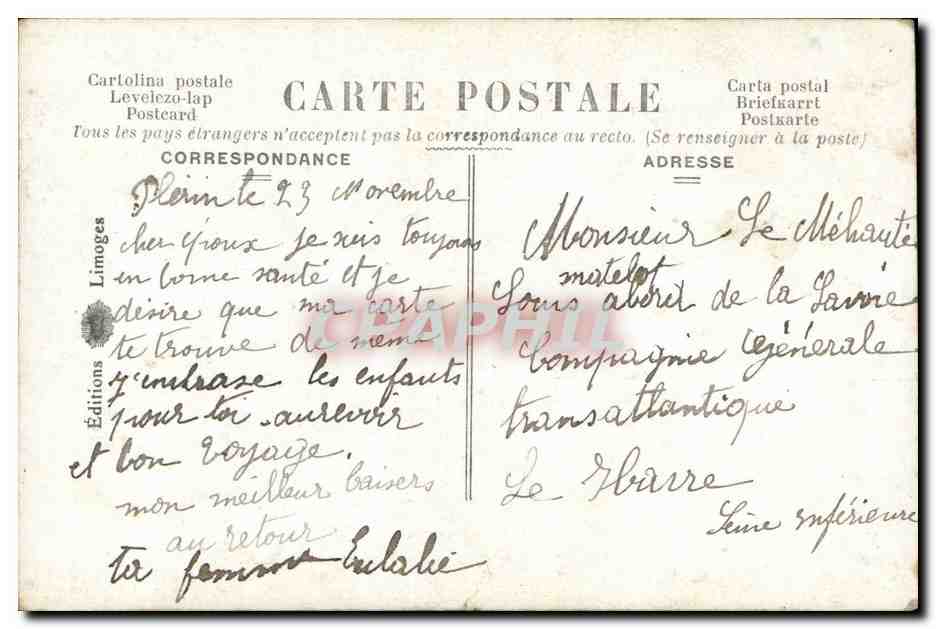 Cartolina postale
Levelezo-lap
Postcard
CARTE POSTALE
Carta postal
Briefkarrt
Postkarte
Tous les pays étrangers n'acceptent pas la correspondance au recto. (Se renseigner à la poste)
CORRESPONDANCE
Plérin le 23 Novembre
cher époux je suis toujours
en bonne santé et je
désire que ma carte
te trouve de meme
j'embrase les enfants
pour toi. aurevoir
et bon voyage.
mon meilleur baisers
au retour
ta femme Eulalie
Éditions Limoges
ADRESSE
Monsieur Le Méhauté
matelot
abord de la Savoie
Compagnie Générale
transattantique
Le Havre
Seine inférieure
CPAPHIL